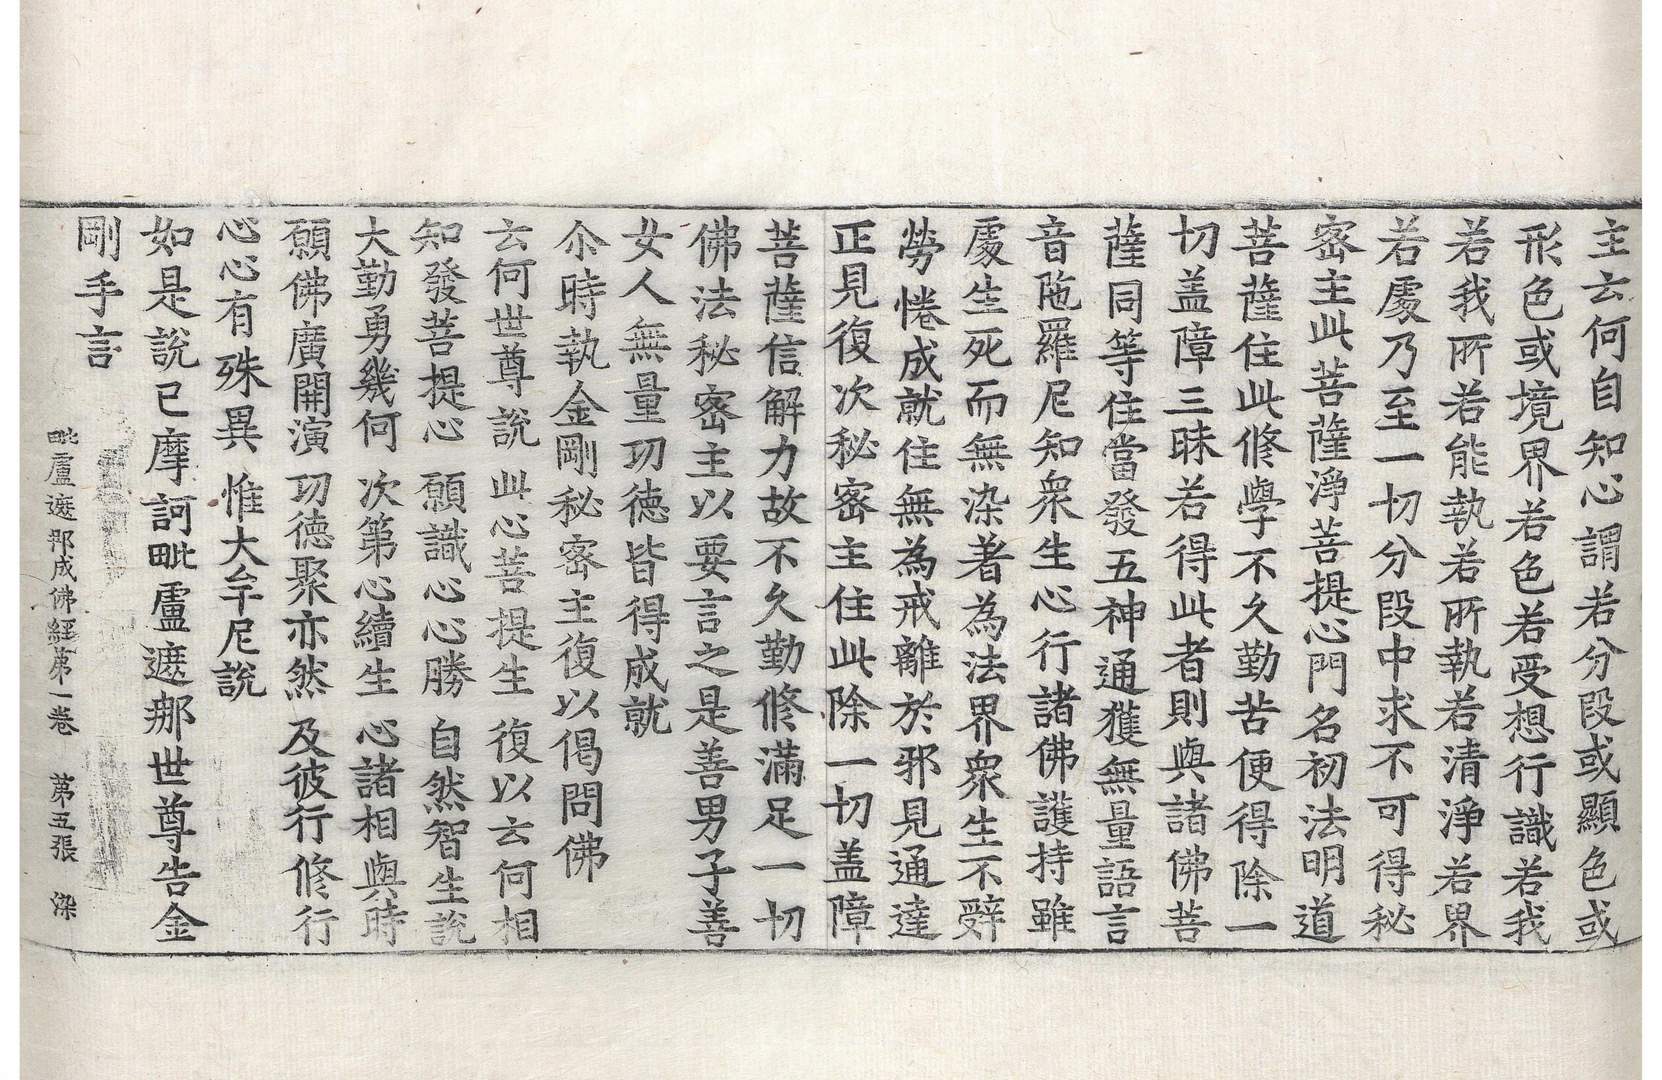 主云何自知心謂若分段或顯色或
形色或境界若色若受想行識若我
若我所若能執若所執若清淨若界
若處乃至一切分段中求不可得秘
密主此菩薩淨菩提心門名初法明道
菩薩住此修學不久勤苦便得除一
切盖障三昧若得此者則與諸佛菩
薩同等住當發五神通獲無量語言
音陁羅尼知衆生心行諸佛護持雖
處生死而無染著為法界衆生不辭
勞惓成就住無為戒離於邪見通達
正見復次秘密主住此除一切盖障
菩薩信解力故不久勤修滿足一切
佛法秘密主以要言之是善男子善
女人無量功德皆得成就
尒時執金剛秘密主復以偈問佛
云何世尊說 此心菩提生 復以云何相
知發菩提心 願識心心勝 自然智生說
大勤勇幾何 次第心續生 心諸相與時
願佛廣開演 功德聚亦然 及彼行修行
心心有殊異 惟大牟尼說
如是說已摩訶毗盧遮那世尊告金
剛手言
毗盧遮那成佛經第一卷 第五張 染